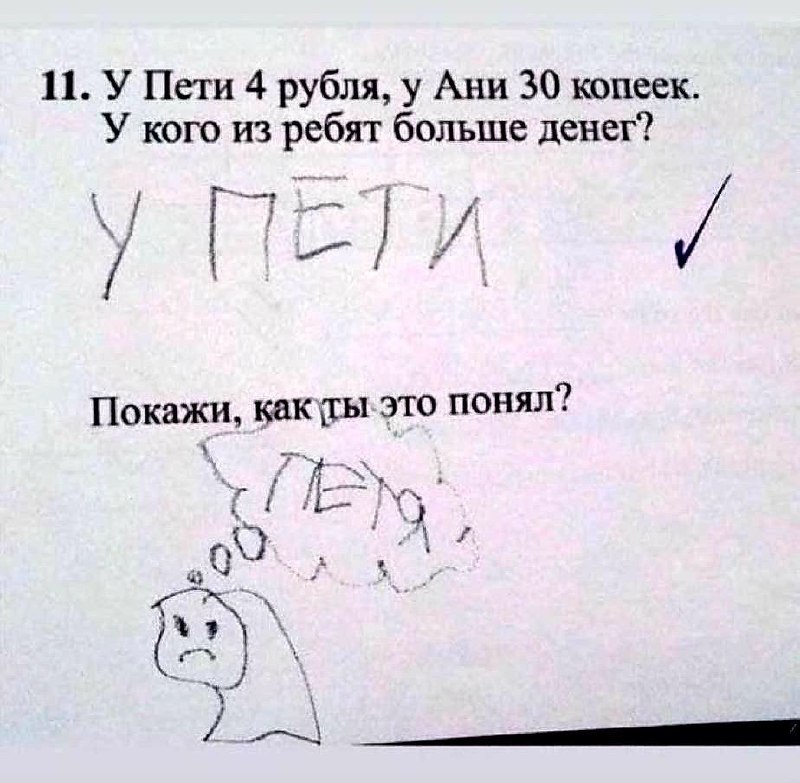 11. У Пети 4 рубля, у Ани 30 копеек.
У кого из ребят больше денег?
У ПЕТИ
Покажи, как ты это понял?
ПЕТЯ